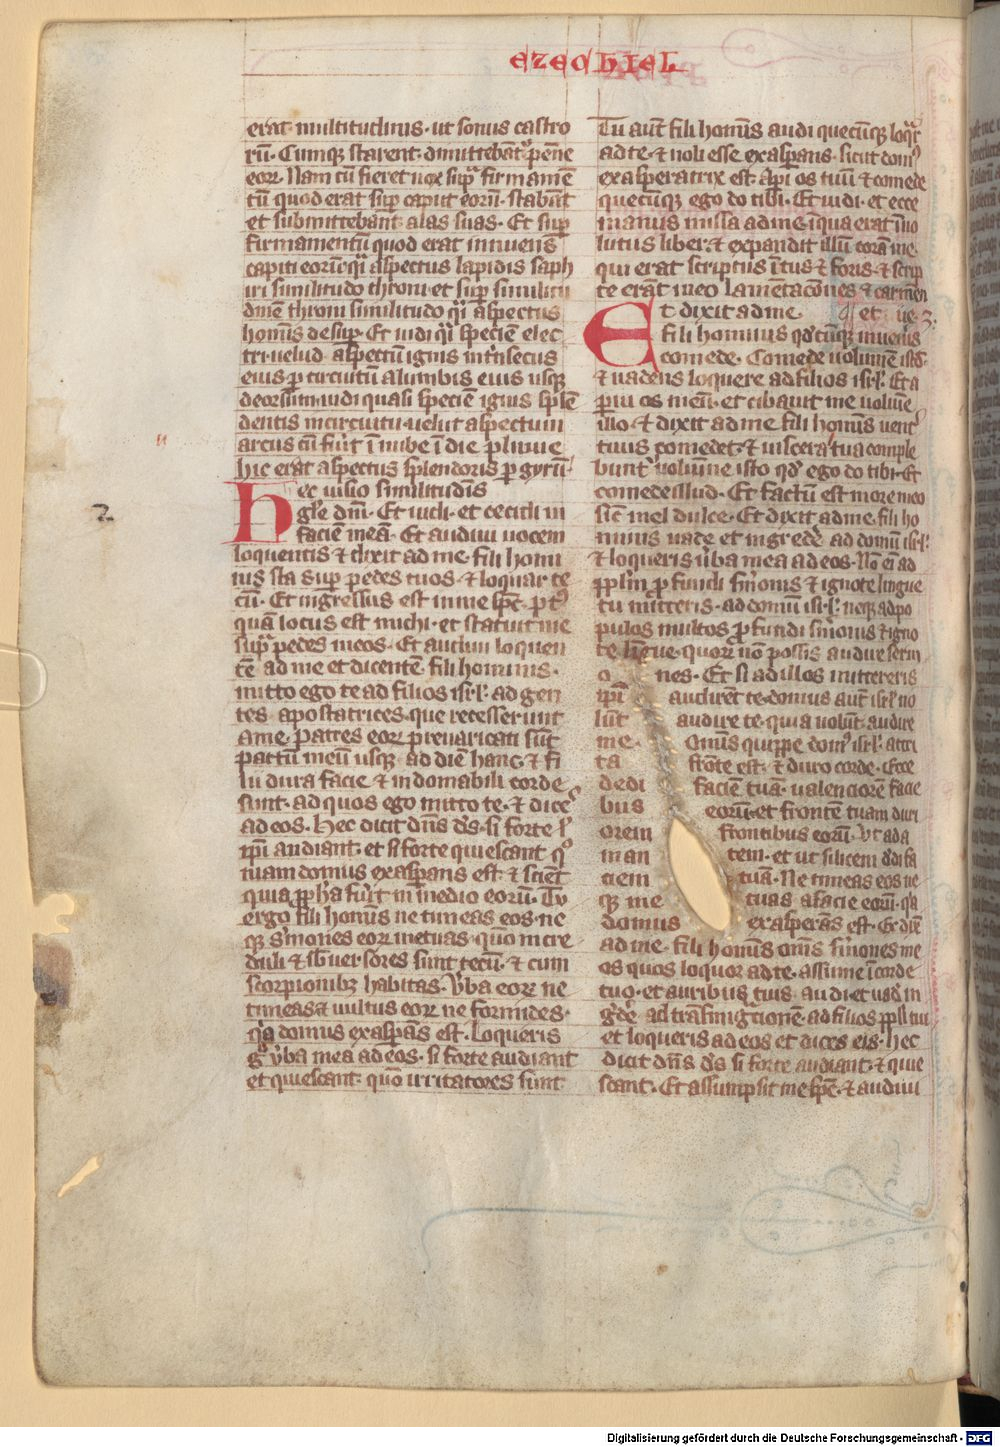 ezechiel
erat multitudinis · ut sonus castro
rū · Cumqȝ starent · dimittebāt᷑ pēne
eoꝝ · Nam cū fieret uox sup̄ firmamē
tū quod erat sup̄ caput eorū · stabāt
et submittebant alas suas · Et sup̄
firmamentū quod erat īminens
capiti eorū · q̄i aspectus lapidis saph
iri similitudo throni · et sup̄ similitu
dinē throni similitudo q̄i aspectus
homīs desup̄ · Et uidi q̄i speciē elec
tri · uelud aspectū ignis intrīsecus
eius ꝑ circuitū a lumbis eius usqȝ
deorsum uidi quasi speciē ignis splē
dentis in circuitu · uelut aspectum
arcus cū fuīt ī nube ī die pluuie
hic erat aspectus splendoris ꝑ gyrū ·
2
hec uisio similitudīs
gl'e dnī · Et uidi · et cecidi in
faciē meā · Et audiui uocem
loquentis ⁊ dixit ad me · fili homi
nis sta sup̄ pedes tuos · ⁊ loquar te
cū · Et ingressus est in me sp̄c · pꝰtꝙ̄
quā locus est michi · et statuit me
sup̄ pedes meos · Et audiui loquen
tē ad me et dicentē · fili hominis ·
mitto ego te ad filios isr̄l · ad gen
tes apostatrices · que recesserunt
a me · patres eoꝝ preuaricati sūt
pactū meū usqȝ ad diē hanc · ⁊ fi
lii dura facie ⁊ indomabili corde
sunt · ad quos ego mitto te · ⁊ dices
ad eos · Hec dicit dn̄s d̄s · si forte uł
ip̄i audiant · et si forte quiescant qꝰ
niam domus exasꝑans est · ⁊ sciēt
quia ꝓph̄a fuīt in medio eorū · Tu
ergo fili homīs ne timeas eos · ne
qȝ s'mones eoꝝ metuas · qūo īncre
duli ⁊ sb'uersores sunt tecū · ⁊ cum
scorpionibȝ habitas · U'ba eoꝝ ne
timeas ⁊ uultus eoꝝ ne formides ·
q̄a domus exasꝑans est · Loqueris
gͦ u'ba mea ad eos · si forte audiant
et quiescant · qūo irritatores sunt
Tu aūt fili homīs audi quecūqȝ loqꝛ
ad te · ⁊ noli esse exasꝑans · sicut domꝰ
exasperatrix est · Apī os tuū ⁊ comede
quecūqȝ ego do tibi · Et uidi · et ecce
manus missa ad me · ī qua erat īuo
lutus liber · ⁊ expandit illū corā me
qui erat scriptus ītus ⁊ foris · ⁊ scrip
te erāt in eo lamentacōnes ⁊ carmen
Et dixit ad me et ue · 3 ·
fili hominis qd'cūqȝ inueīis
comede · Comede uolumē istd'
⁊ uadens loquere ad filios isr̄l · Et a
ꝑui os meū · et cibauit me uolumīe
illo · ⁊ dixit ad me · fili homīs uent̉
tuus comedet · ⁊ uiscera tua comple
bunt᷑ uolumīe isto qd' ego do tibi · Et
comedi illud · Et factū est in ore meo
sic̄ mel dulce · Et dixit ad me · fili ho
minis uade et ingred'e ad domū isr̄l ·
⁊ loqueris u'ba mea ad eos · Nō eī ad
ppl'm ꝓfundi s'monis ⁊ ignote lingue
tu mitteris · ad domū isr̄l · neqȝ ad po
pulos multos ꝓfundi s'monis ⁊ igno
te līgue · quoꝝ nō possis audire serm
o nes · Et si ad illos mittereris
ip̄i audirēt te · domus aūt isr̄l no
lūt audire te · quia nolūt audire
me · Omīs quippe domꝰ isr̄l · attri
ta frōte est · ⁊ duro corde · Ecce
dedi faciē tuā · ualenciorē facie
bus eorū · et frontē tuam duri
orem frontibus eorū · Vt ada
man tem · et ut silicem d'di fa
ciem tuā · Ne timeas eos ne
qȝ me tuas a facie eorū · q̄a
domus exasperās est · Et dix'
ad me · fili homīs omīs s'mones me
os quos loquor ad te · assume ī corde
tuo · et auribus tuis audi · et uad' in
g'd'e ad trāsmigcionē · ad filios ppl'i tui
et loqueris ad eos et dices eis · Hec
dicit dn̄s d̄s si forte audiant · ⁊ quie
scant · Et assumpsit me sp̄c · ⁊ audiui
Digitalisierung gefördert durch die Deutsche Forschungsgemeinschaft - DFG